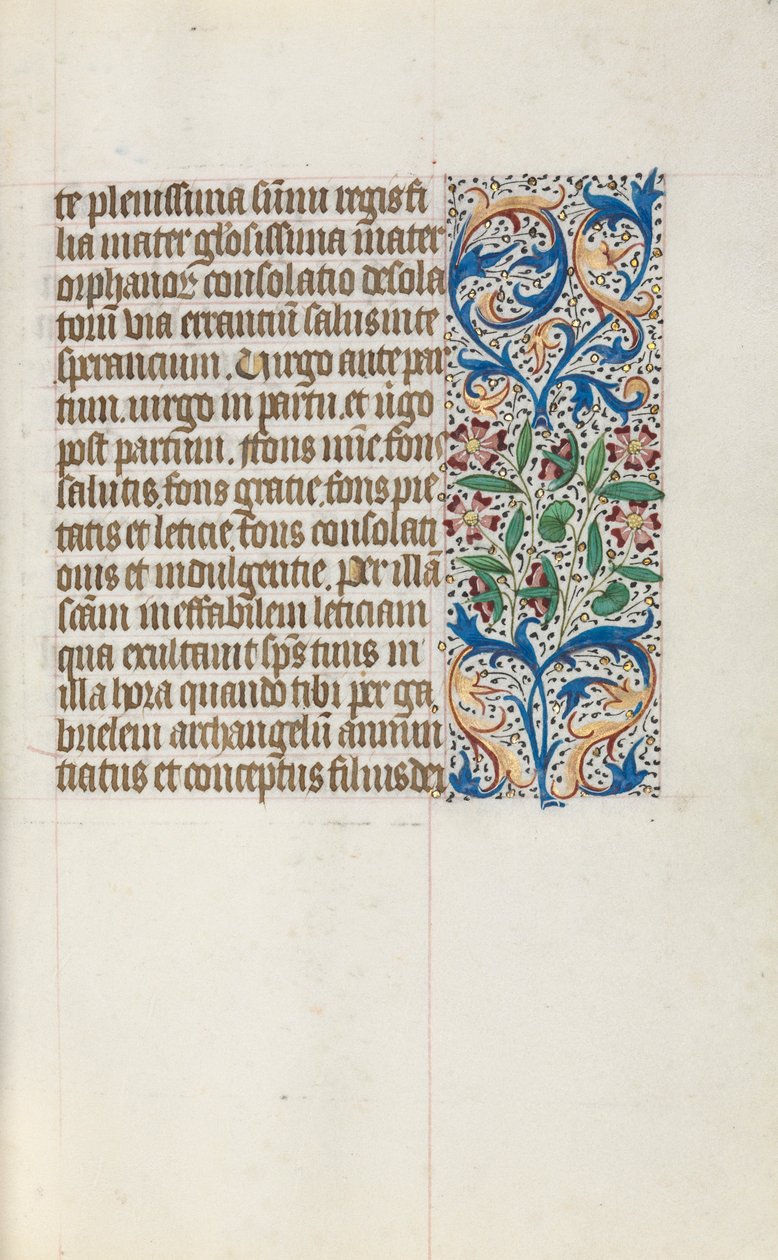 te plenissima sūmi regis fi
lia mater gl̄osissima mater
orphanoꝝ consolatio desola
torū via errantiū salus inte
sperancium. Virgo ante par
tum. uirgo in partu. et ūgo
post partum. Fons mīe. fons
salutis. fons gratie. fons pie
tatis et leticie. fons consolati
onis et indulgentie. Per illā
scām ineffabilem leticiam
qua exultauit sp̄s tuus in
illa hora quando tibi per ga
brielem archangelū annun
tiatus et conceptus filius dei